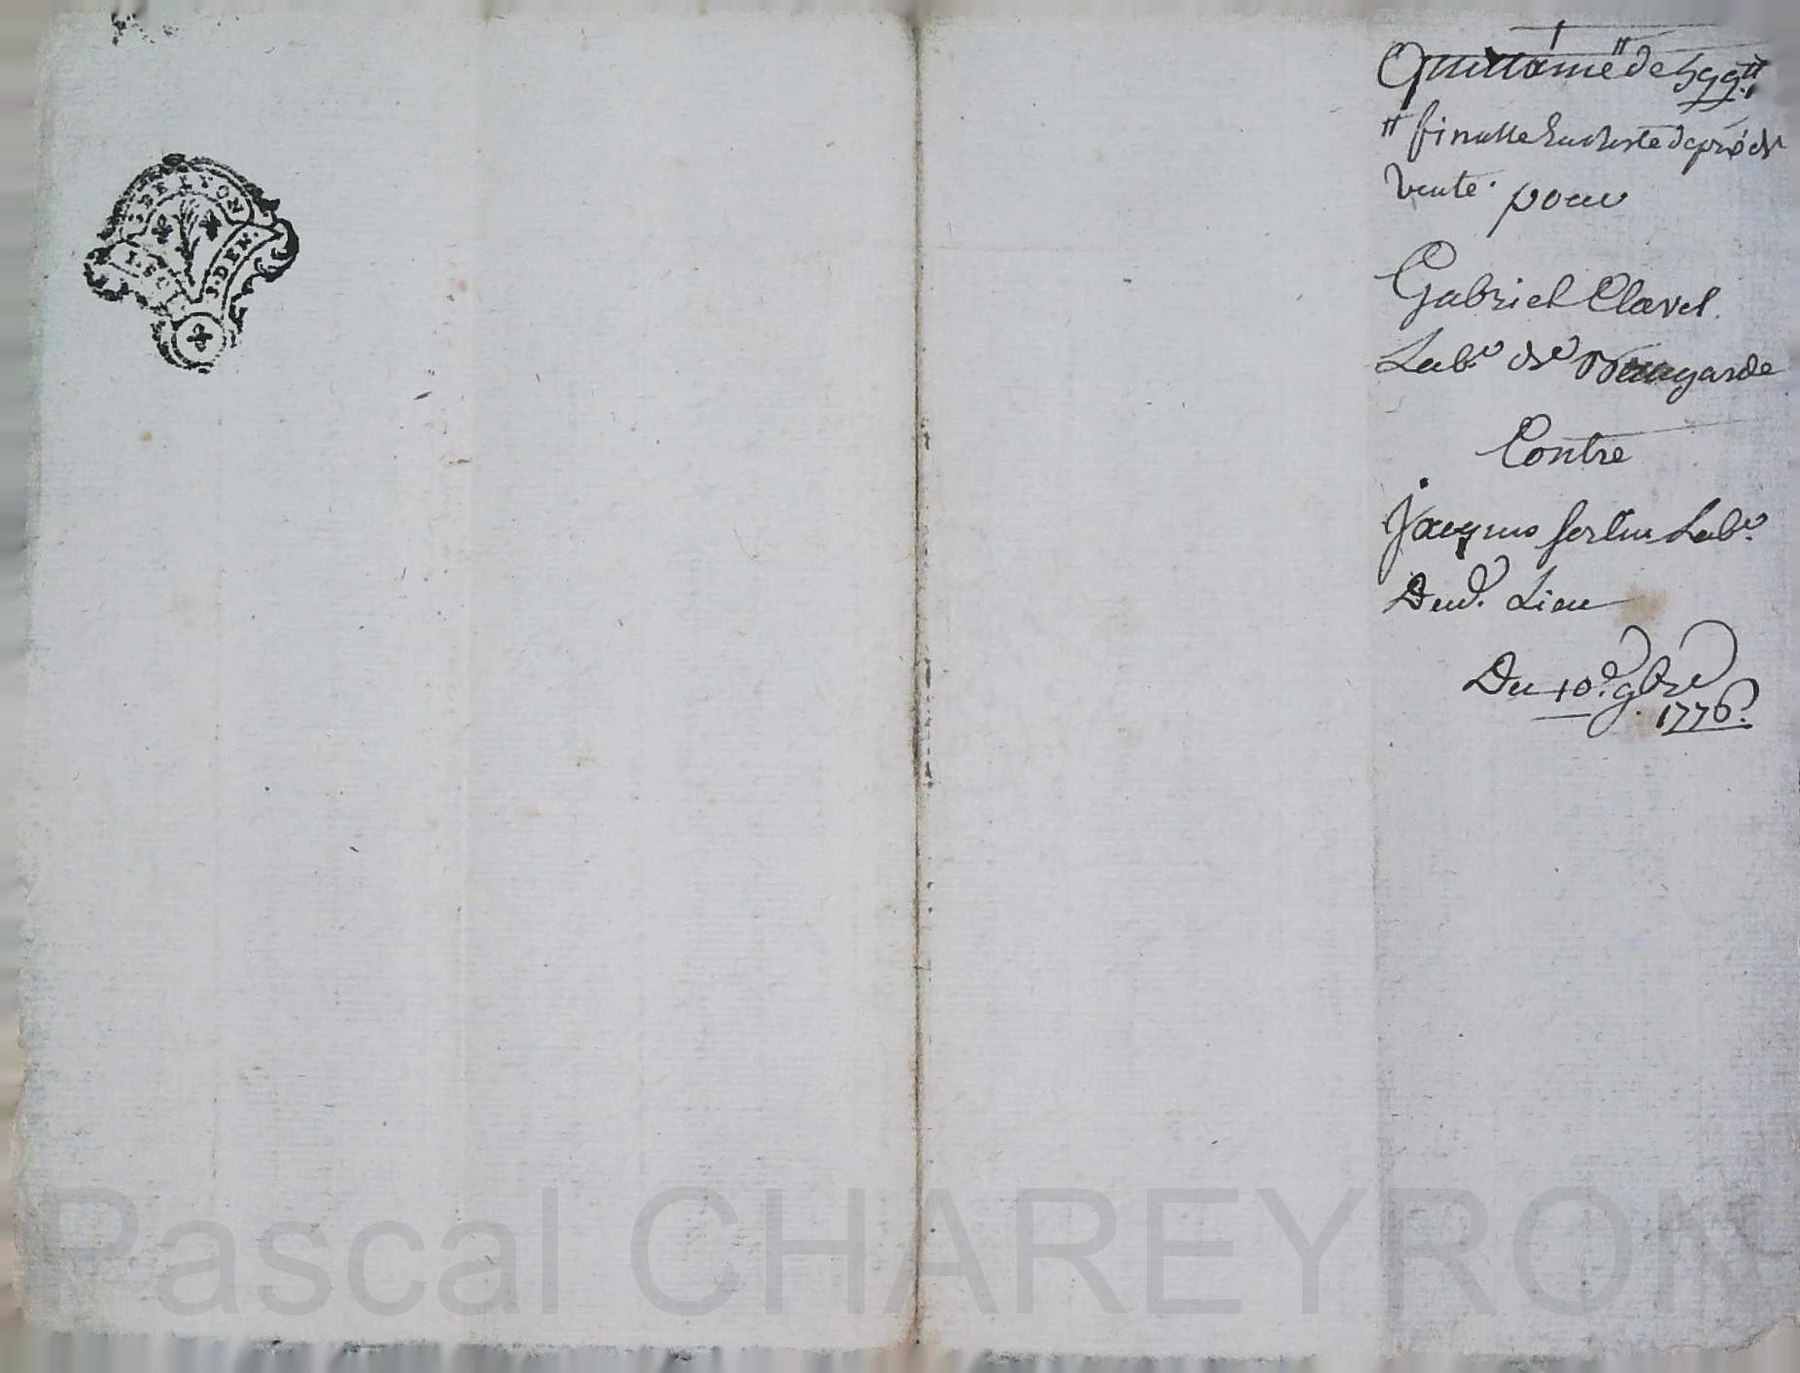 DE LYON
1. SO
DEN.
Quittance de 599tt
finalle En Reste de prix de
Vente. pour
Gabriel Clavel
Labr de
Contre
Jacques Labr
Dud. Lieu
Du 10e 9bre
1776.
Pascal CHAREYRON